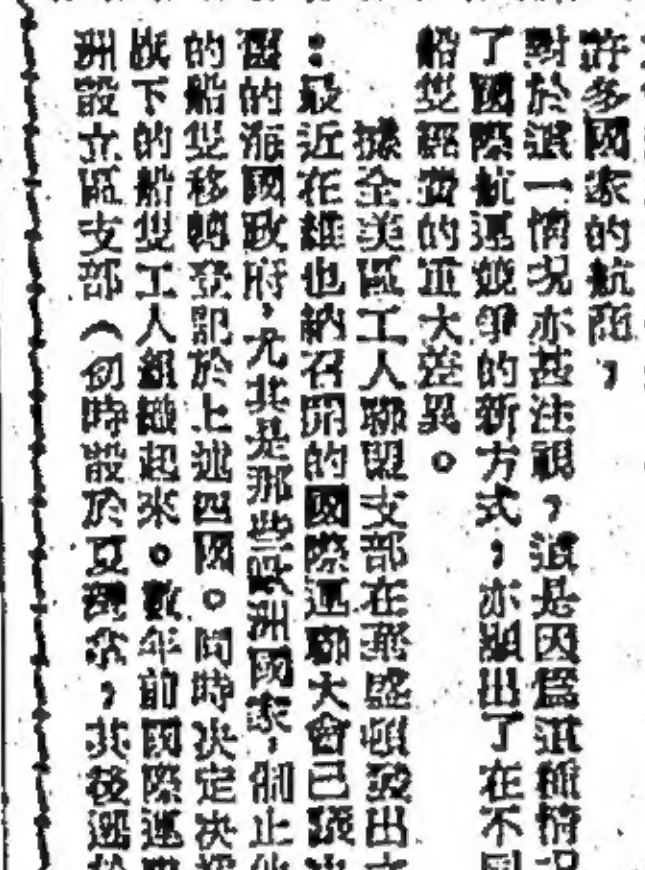 許多國家的航商，
對於這一情況亦甚注視，這是因爲這種情況
了國際航運競爭的新方式，亦顯出了在不同
船隻經費的重大差異。
據全美區工人聯盟支部在華盛頓發出
：最近在維也納召開的國際運聯大會已發出
國的派國政府，尤其是那些歐洲國家，制止他
的船隻移轉登記於上述四國。同時決定決
旗下的船隻工人組織起來。數年前國際運
洲設立區支部（初時設於夏灣拿，其後遷於